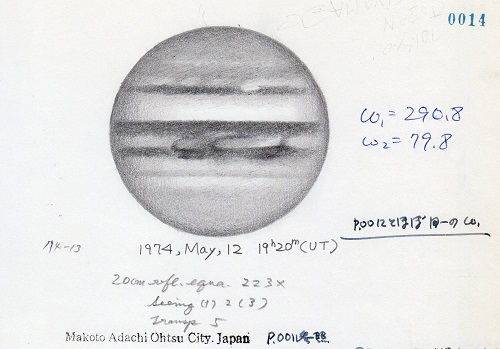 0014
ω₁ = 290.8
ω₂ = 79.8
P.0012とほぼ同一のω₁
74-13
1974, May, 12 19ʰ20ᵐ(UT)
20cm refl. equa. 223x
Seeing (1) 2 (3)
Transp 5
Makoto Adachi Ohtsu City. Japan P.0011参照